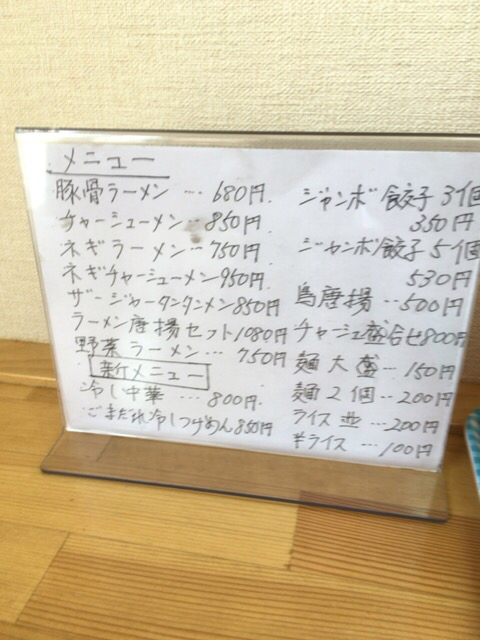 メニュー
豚骨ラーメン … 680円
チャーシューメン … 850円
ネギラーメン … 750円
ネギチャーシューメン 950円
ザージャータンタンメン 850円
ラーメン唐揚セット 1080円
野菜ラーメン … 750円
新メニュー
冷し中華 … 800円
ごまだれ冷しつけめん 850円
ジャンボ餃子 3個
350円
ジャンボ餃子 5個
530円
鳥唐揚 … 500円
チャーシュ盛合せ 800円
麺大盛 … 150円
麺2個 … 200円
ライス並 … 200円
半ライス … 100円